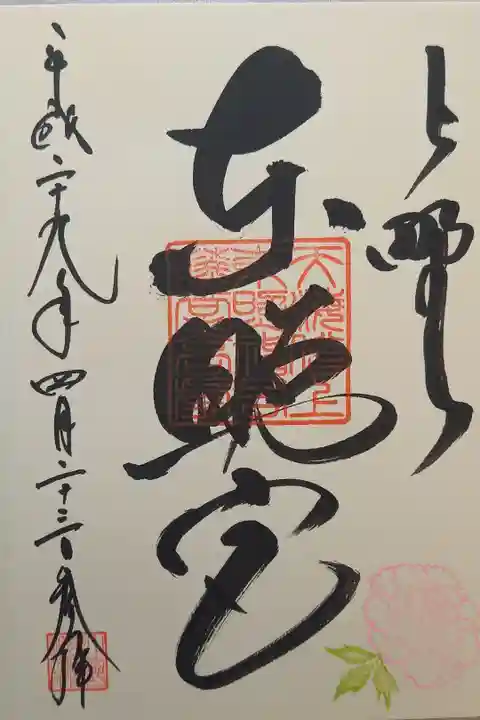 上野
東照宮
平成二十九年四月二十三日参拝